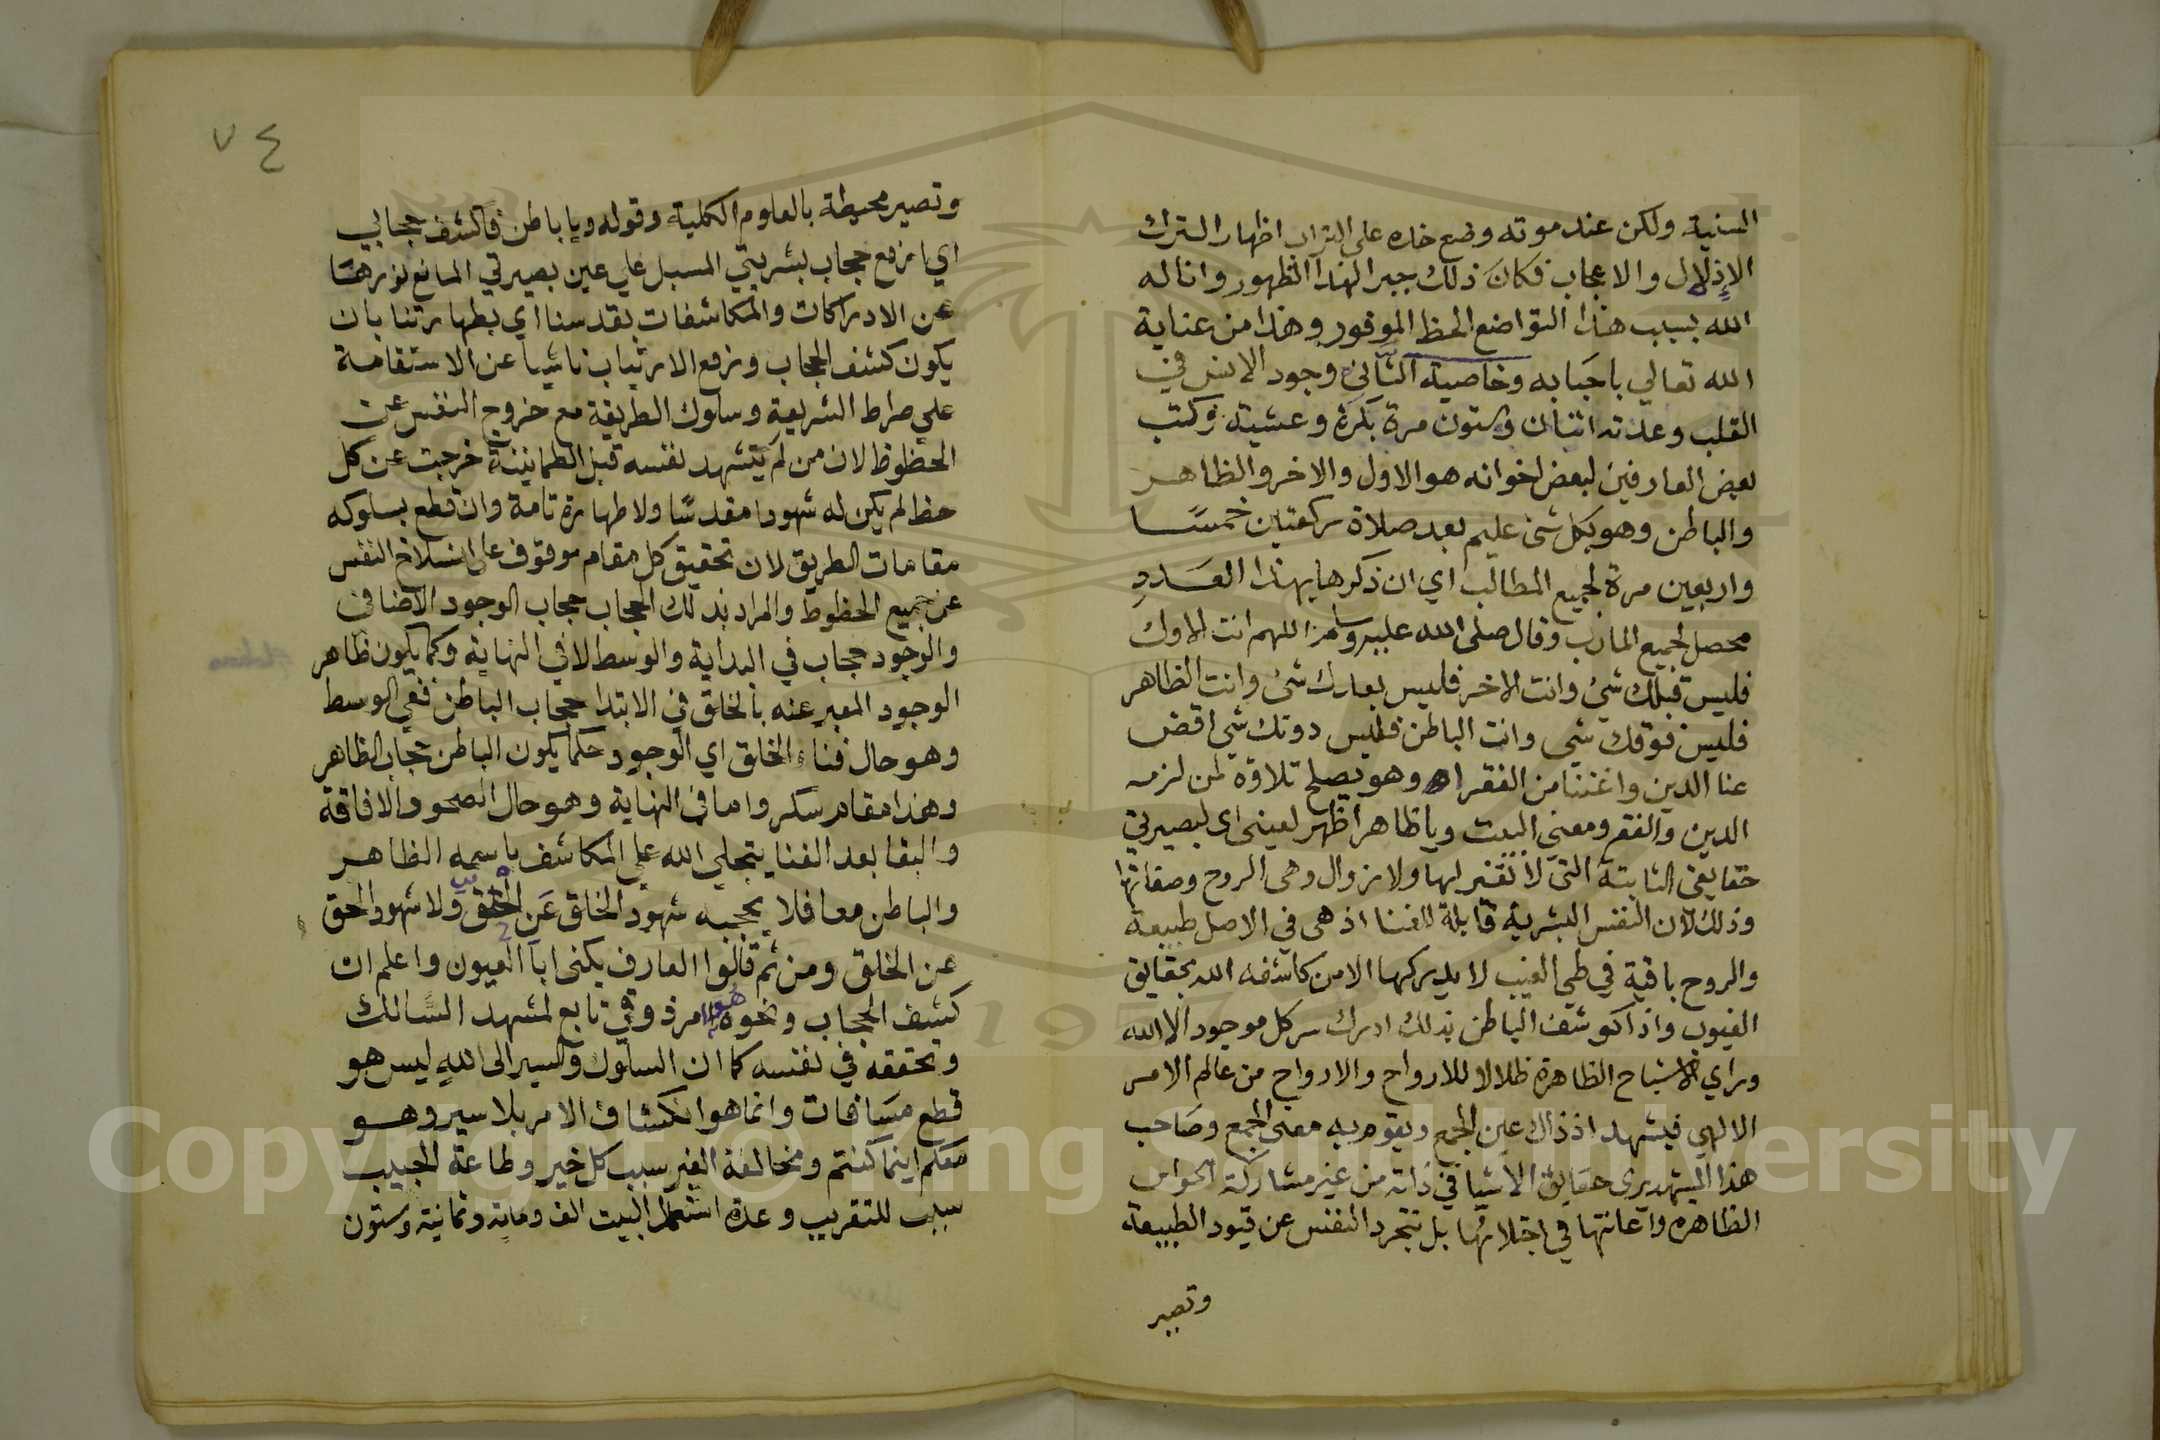 السنية ولكن عند موته وضع خده على التراب اظهارا لترك
الإذلال والاعجاب فكان ذلك جبرا لهذا الظهور واناله
الله بسبب هذا التواضع الحظ الموفور وهذا من عناية
الله تعالي باحبابه وخاصية الثاني وجود الانس في
القلب وعدته اثنان وستون مرة بكرة وعشية وكتب
بعض العارفين لبعض اخوانه هو الاول والاخر والظاهر
والباطن وهو بكل شئ عليم بعد صلاة ركعتين خمسًا
واربعين مرة لجميع المطالب اي ان ذكرها بهذا العدد
محصل لجميع المارب وقال صلى الله عليه وسلم اللهم انت الاول
فليس قبلك شئ وانت الاخر فليس بعدك شئ وانت الظاهر
فليس فوقك شي وانت الباطن فليس دونك شي اقض
عنا الدين واغننا من الفقر اهـ وهو يصلح تلاوة لمن لزمه
الدين والفقر ومعني البيت ويا ظاهرا ظهر لعيني اي لبصيرتي
حقايقي الثابتة التي لا تغير لها ولا زوال وهي الروح وصفاتها
وذلك لان النفس البشرية قابلة للفنا اذ هي في الاصل طبيعة
والروح باقية في طي الغيب لا يدركها الا من كاشفه الله بحقايق
الغيوب واذا كوشف الباطن بذلك ادرك سر كل موجود الا الله
وراي الاشباح الظاهرة ظلالا للارواح والارواح من عالم الامر
الالهي فيشهد اذ ذاك عين الجمع ويقوم به معني الجمع وصاحب
هذا المشهد يري حقايق الاشيا في ذاته من غير مشاركة الحواس
الظاهره واعانتها في اجتلائها بل تتجرد النفس عن قيود الطبيعة
وتصير
٧٤
وتصير محيطة بالعلوم الكلية وقوله ويا باطن فاكشف حجابي
اي ارفع حجاب بشريتي المسبل علي عين بصيرتي المانع نورها
عن الادراكات والمكاشفات بقدسنا اي بطهارتنا بان
يكون كشف الحجاب ورفع الارتياب ناشيا عن الاستقامة
علي صراط الشريعة وسلوك الطريقة مع خروج النفس عن
الحظوظ لان من لم يشهد نفسه قبل الطمانينة خرجت عن كل
حظ لم يكن له شهودا مقدسًا ولا طهارة تامة وان قطع بسلوكه
مقامات الطريق لان تحقيق كل مقام موقوف على انسلاخ النفس
عن جميع الحظوظ والمراد بذلك الحجاب حجاب الوجود الاضافي
والوجود حجاب في البداية والوسط لا في النهاية وكما يكون ظاهر
الوجود المعبر عنه بالخلق في الابتدا حجاب الباطن ففي الوسط
وهو حال فناء الخلق اي الوجود حكما يكون الباطن حجاب الظاهر
وهذا مقام سكر واما في النهاية وهو حال الصحو والافاقة
والبقا بعد الفنا يتجلي الله علي المكاشف باسمه الظاهر
والباطن معا فلا يحجبه شهود الخلق عن الحق ولا شهود الحق
عن الخلق ومن ثم قالوا العارف يكنى ابا العيون واعلم ان
كشف الحجاب ونحوه هو امر ذوقي تابع لمشهد السالك
وتحققه في نفسه كما ان السلوك والسير الى الله ليس هو
قطع مسافات وانما هو انكشاف الامر بلا سير وهو
معكم اينما كنتم ومخالفة الغير سبب كل خير وطاعة الحبيب
سبب للتقريب وعدة استعمال البيت الف وماية وثمانية وستون
Copyright © King Saud University